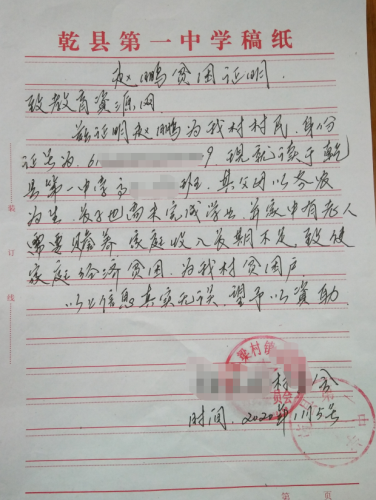 乾县第一中学稿纸
赵鹏贫困证明.
致教育资源网
兹证明赵鹏为我村村民,身份
证号为:61 9. 现就读于乾
县第一中学高 班,其父因以务农
为生,及 尚未完成学业,并家中有老人
需要赡养,家庭收入长期不足,致使
家庭经济贫困,为我村贫困户
以上信息真实无误,望予以资助.
村 会
时间:2020年11月5号
装订线
第 页